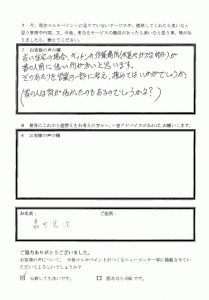 7 今、現在マルキペイントに足りていないサービスや、提供してくれたら良いなと
思う事柄や内容、又、今後、更なるサービスの強化があったら良いなと思う事、等が有
りましたら、教えてください。
7 お客様の声の欄
古い住宅の場合、キッチンの作業場所(水道やガス台部分)が
昔の人用に低い所が多いと思います。
そのあたりを営業の一部に考え、極めてはいかがでしょうか。
(昔の人は背が低かったのもあるのでしょうかね?)
8 最後にこれから塗替えをお考えの方々へ一言アドバイスがあれば、お願いします。
8 お客様の声の欄
お名前:
ご住所:
ご協力ありがとうございました。
お客様の声について、今後マルキペイントのつくるニュースレター等に掲載させていた
だいてよろしいでしょうか?
公表しても良いです。
匿名なら可能です。